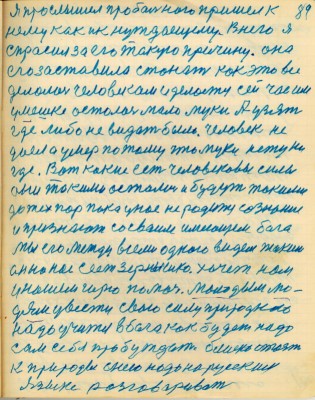 я прослышил про бального пришел к 89
нему как к нуждающему. В него я
спрасил за его такую причину. она
его заставила стонать как это все
делают человекам сделать сей час им
умешке осталось мало муки А узять
где либо не видать было. человек не
доел а умер потому что муки нету ни
где. Вот какие есть человековы силы
они такими остались и будут такими
до тех пор пока у нас не родить сознание
и признают со своим имеющем бога
мы его между всем одного видим таким
а но нас сеет зернинко. хочет нам
у нашем горю помоч. Молодым лю-
дям увести свою силу природную
надо учити в бога как будет надо
сам себя пробуждать близко стоять
к природы с нею надо на русским
языке разговаривать